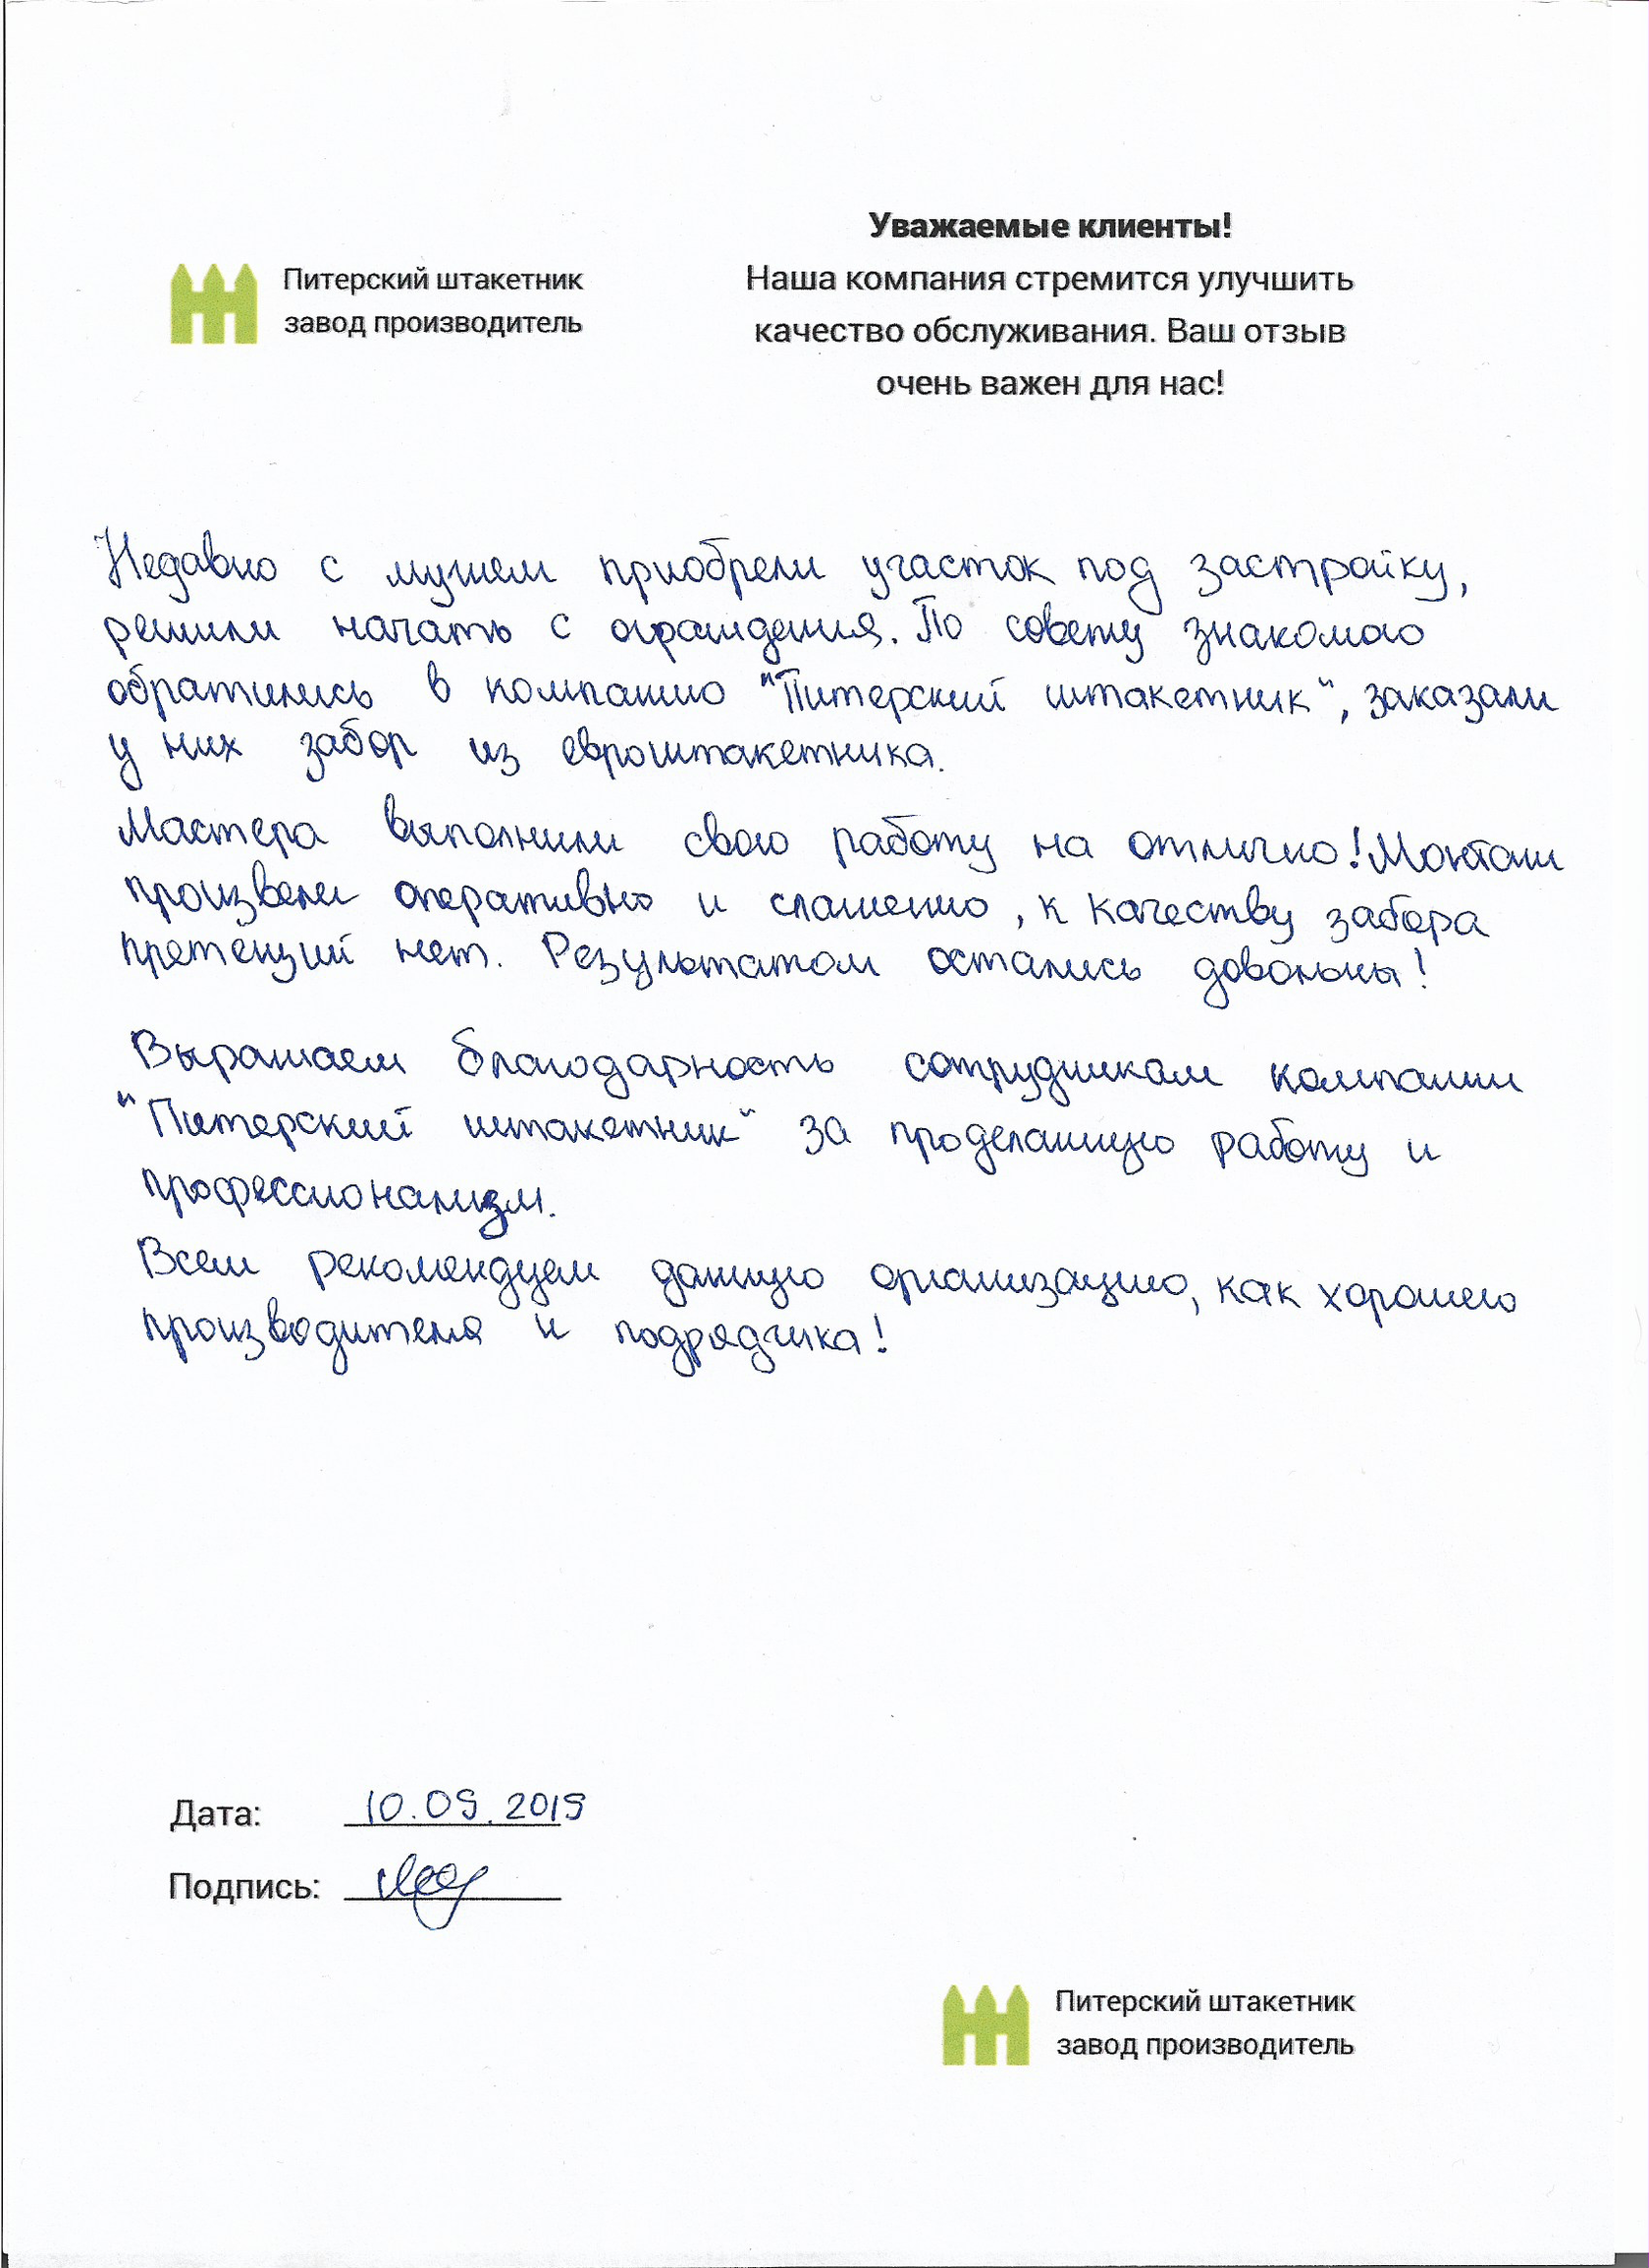 Питерский штакетник
завод производитель
Уважаемые клиенты!
Наша компания стремится улучшить
качество обслуживания. Ваш отзыв
очень важен для нас!
Недавно с мужем приобрели участок под застройку,
решили начать с ограждения. По совету знакомого
обратились в компанию "Питерский штакетник", заказали
у них забор из евроштакетника.
Мастера выполнили свою работу на отлично! Монтаж
произвели оперативно и слаженно, к качеству забора
претензий нет. Результатом остались довольны!
Выражаем благодарность сотрудникам компании
"Питерский штакетник" за проделанную работу и
профессионализм.
Всем рекомендуем данную организацию, как хорошего
производителя и подрядчика!
Дата: 10.09.2019
Подпись:
Питерский штакетник
завод производитель